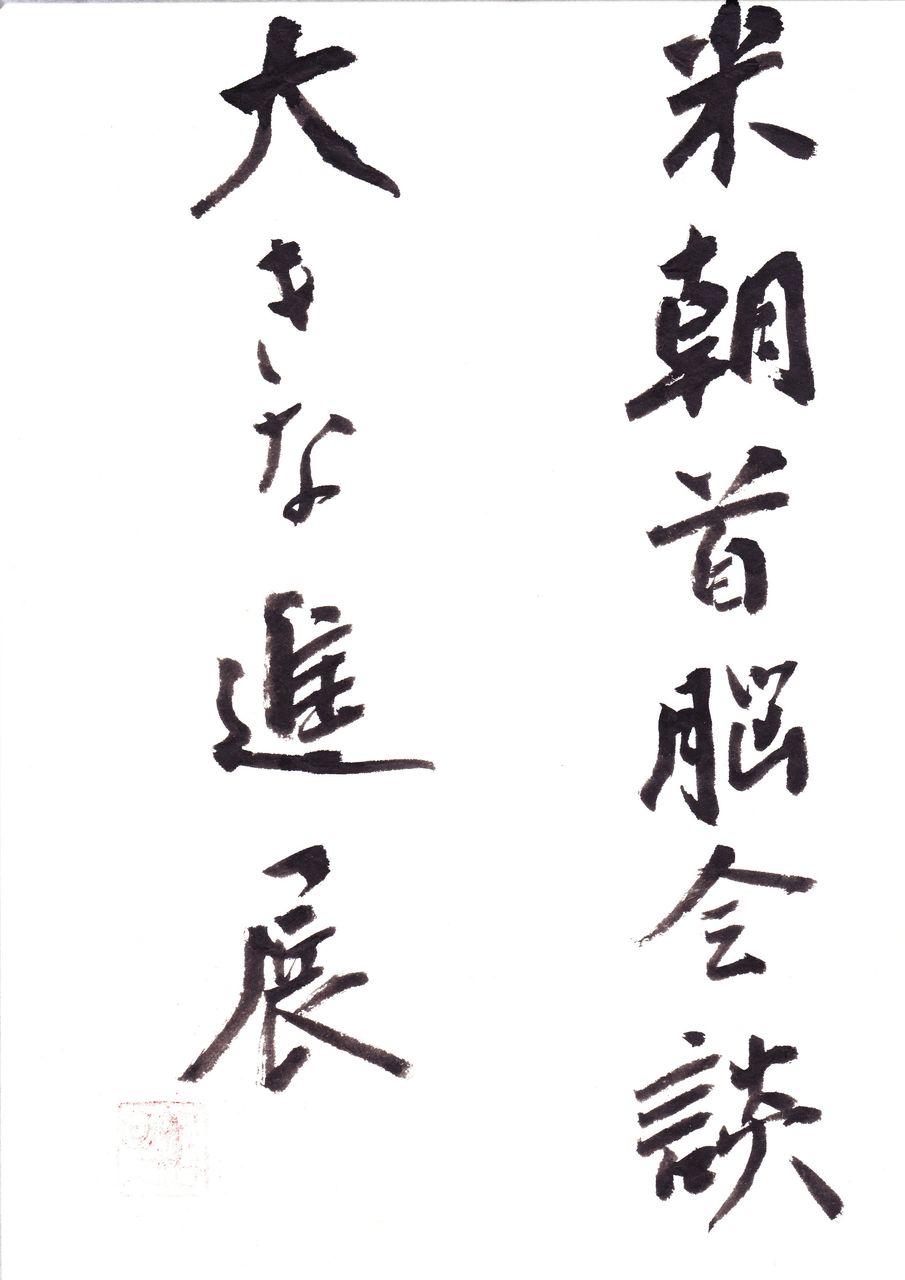 米朝首脳会談
大きな進展